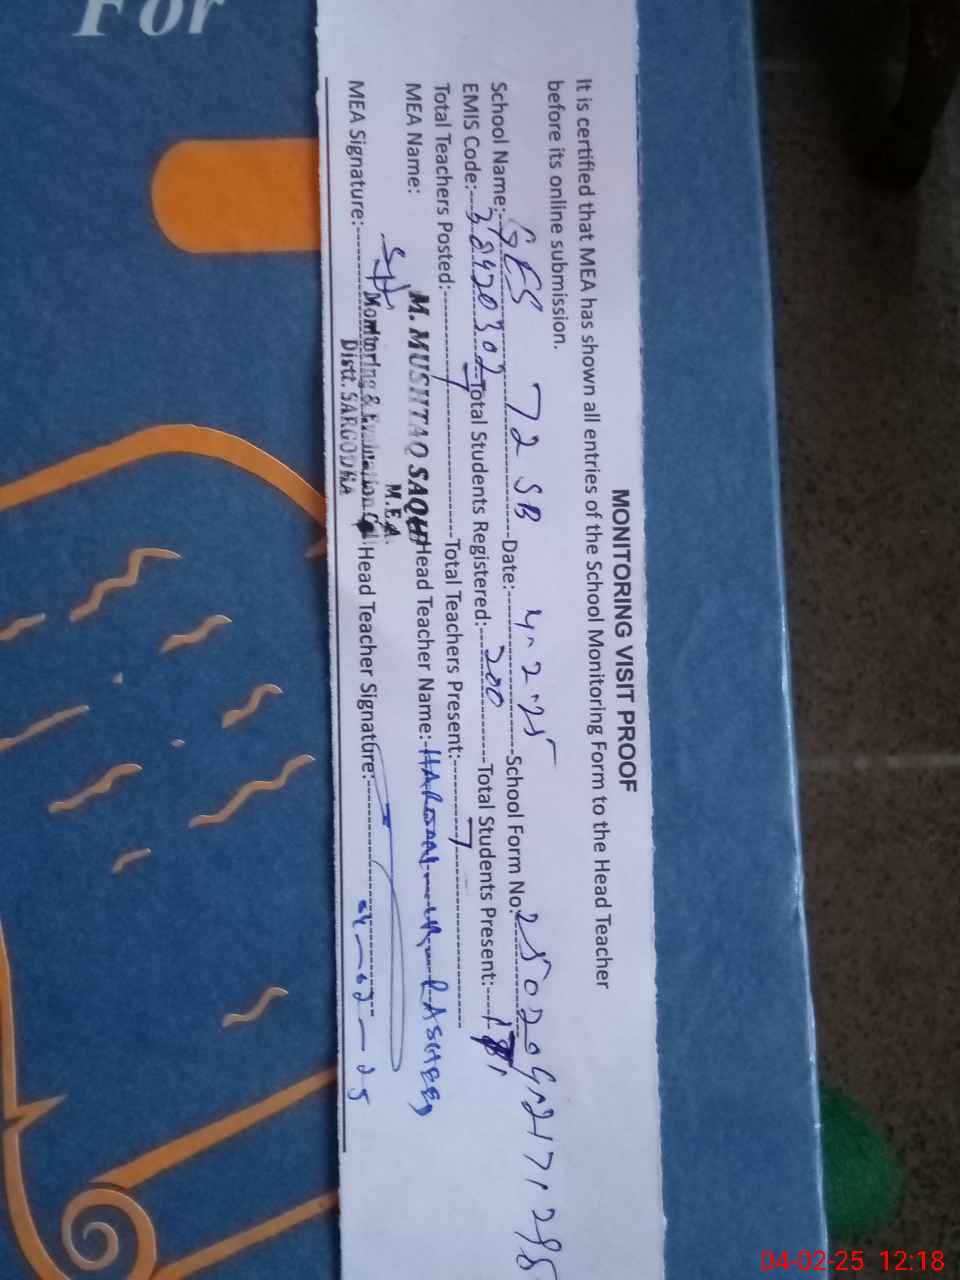 For
MONITORING VISIT PROOF
It is certified that MEA has shown all entries of the School Monitoring Form to the Head Teacher
before its online submission.
School Name:- GES 72 SB Date:- 4.2.25 School Form No:- 
EMIS Code:- 38420302 Total Students Registered:- 200 Total Students Present:-
Total Teachers Posted:- 7 Total Teachers Present:- 7
MEA Name: M. MUSHTAQ SAQIB Head Teacher Name:- HAROON-UR-RASHEED
M.E.A.
MEA Signature:- Head Teacher Signature:-
Monitoring & Evaluation
Distt. SARGODHA
04-02-25
04-02-25 12:18